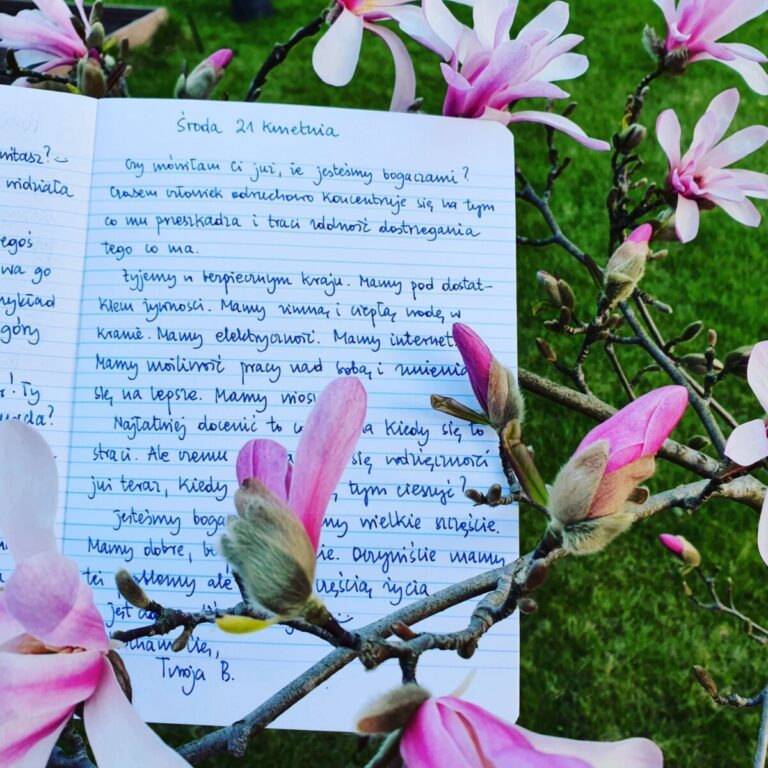 mitasz? :)
widziała
egoś
wa go
zykład
góry
! Ty
Środa 21 kwietnia
Czy mówiłam Ci już, że jesteśmy bogaczami?
Czasem człowiek odruchowo koncentruje się na tym
co mu przeszkadza i traci zdolność dostrzegania
tego co ma.
Żyjemy w bezpiecznym kraju. Mamy pod dostat-
kiem żywności. Mamy zimną i ciepłą wodę w
kranie. Mamy elektryczność. Mamy internet
Mamy możliwość pracy nad sobą i zmienia
się na lepsze. Mamy wios
Najłatwiej docenić to co kiedy się to
straci. Ale czemu się wdzięczności
już teraz, kiedy tym cieszyć?
Jesteśmy boga my wielkie szczęście.
Mamy dobre, be ie. Oczywiście mamy
też problemy ale częścią życia
jest
Twoja B.